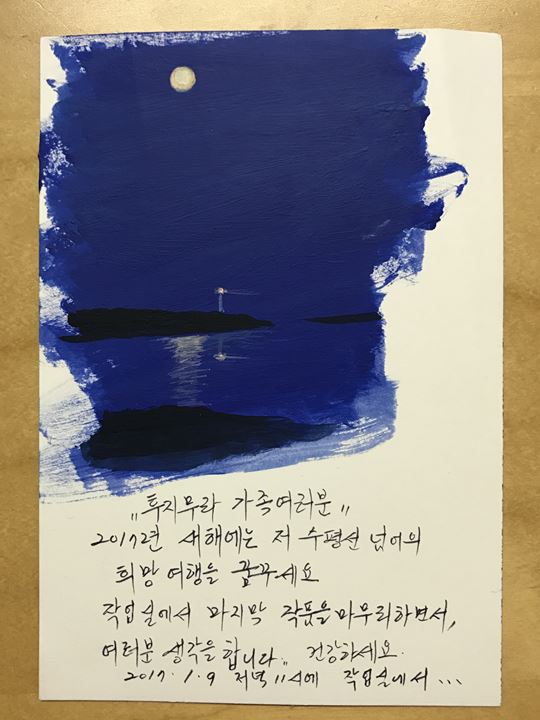 "투지무라 가족여러분"
2017년 새해에는 저 수평선 넘어의
희망여행을 꿈꾸세요
작업실에서 마지막 작품을 마무리하면서,
여러분 생각을 합니다.. 건강하세요.
2017. 1. 9 저녁 11시에 작업실에서...